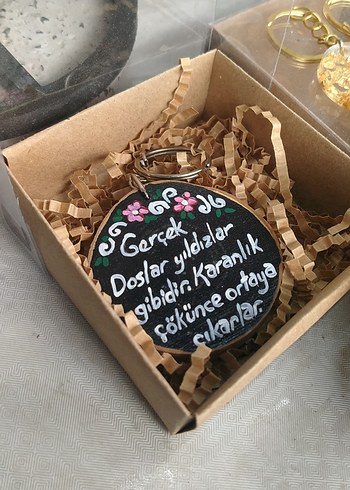 Gerçek
Doslar yıldızlar
gibidir. Karanlık
çökünce ortaya
çıkarlar.